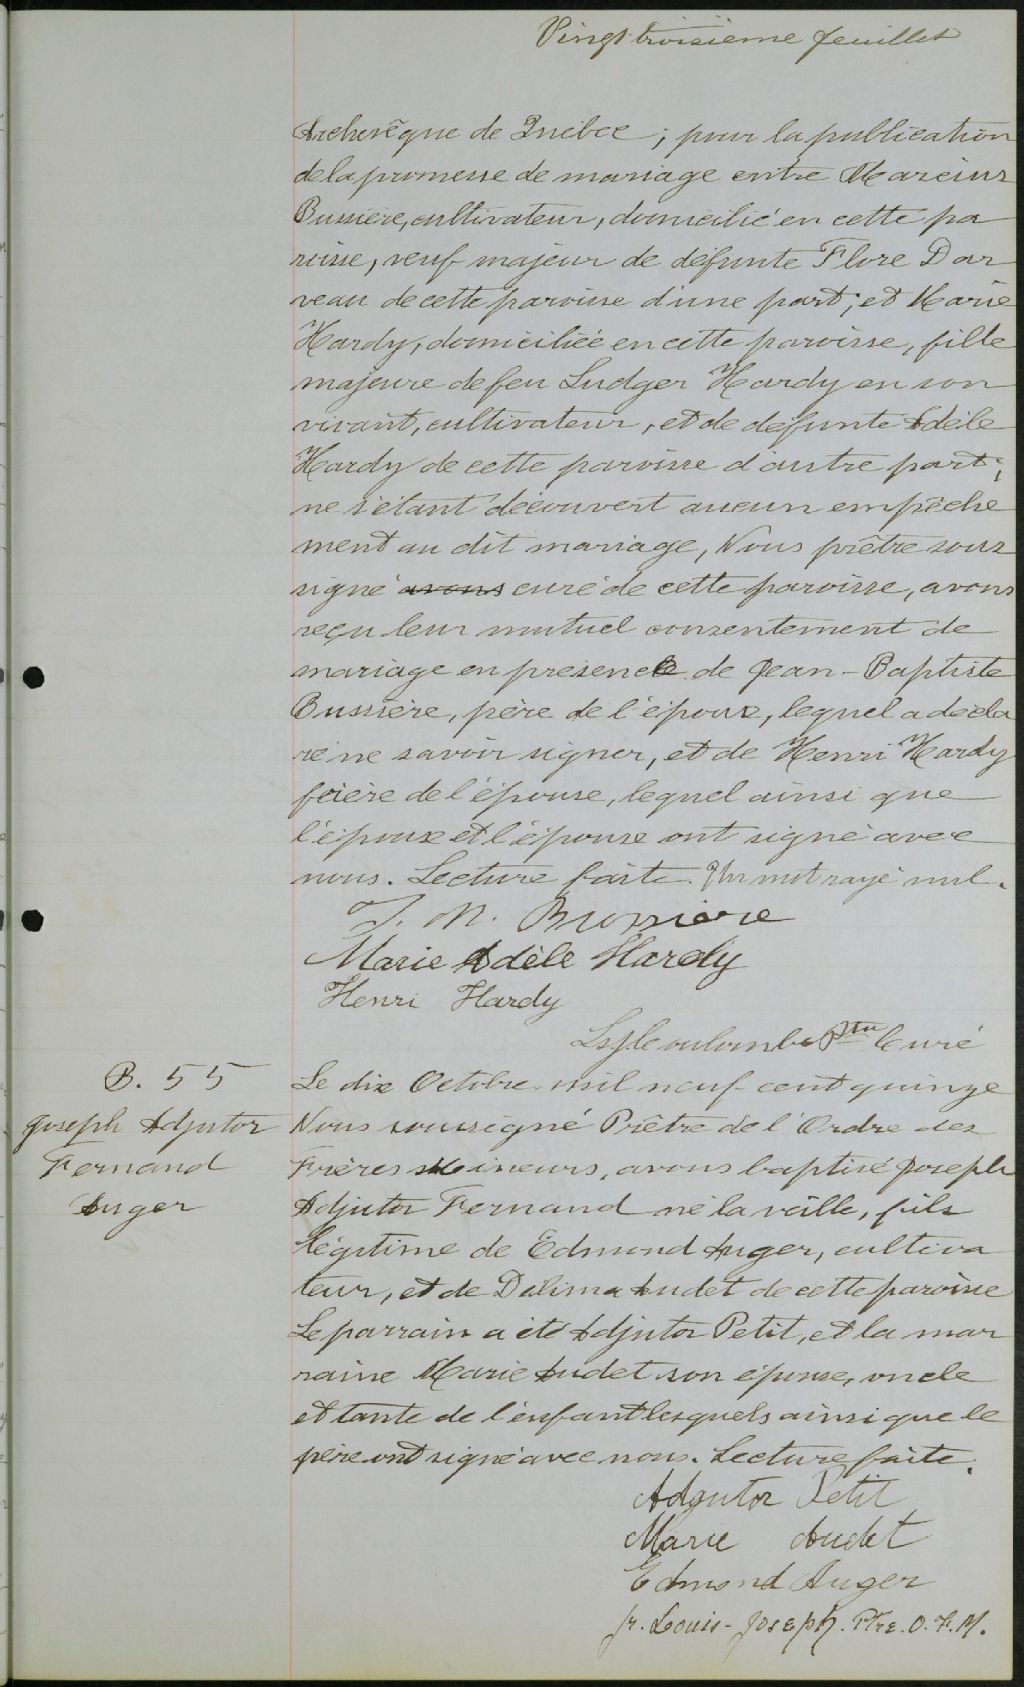 Vingt troisième feuillet
Archevêque de Québec ; pour la publication
de la promesse de mariage entre Marcius
Bussière, cultivateur, domicilié en cette pa
roisse, veuf majeur de défunte Flore Dar
veau de cette paroisse d'une part ; et Marie
Hardy, domiciliée en cette paroisse, fille
majeure de feu Ludger Hardy en son
vivant, cultivateur, et de défunte Adèle
Hardy de cette paroisse d'autre part ;
ne s'étant découvert aucun empêche
ment au dit mariage, Nous prêtre sous
signé avons curé de cette paroisse, avons
reçu leur mutuel consentement de
mariage en présence de Jean-Baptiste
Bussière, père de l'époux, lequel a décla
ré ne savoir signer, et de Henri Hardy
frère de l'épouse, lequel ainsi que
l'époux et l'épouse ont signé avec
nous. Lecture faite. Un mot rayé nul.
J. M. Bussiere
Marie Adèle Hardy
Henri Hardy
Ptre Curé
B. 55
Joseph Adjutor
Fernand
Auger
Le dix Octobre mil neuf cent quinze
Nous soussigné Prêtre de l'Ordre des
Frères Mineurs, avons baptisé Joseph
Adjutor Fernand né la veille, fils
légitime de Edmond Auger, cultiva
teur, et de Dalima Audet de cette paroisse
Le parrain a été Adjutor Petit, et la mar
raine Marie Audet son épouse, oncle
et tante de l'enfant lesquels ainsi que le
père ont signé avec nous. Lecture faite.
Adjutor Petit
Marie Audet
Edmond Auger
fr. Louis-Joseph. Ptre. O.F.M.